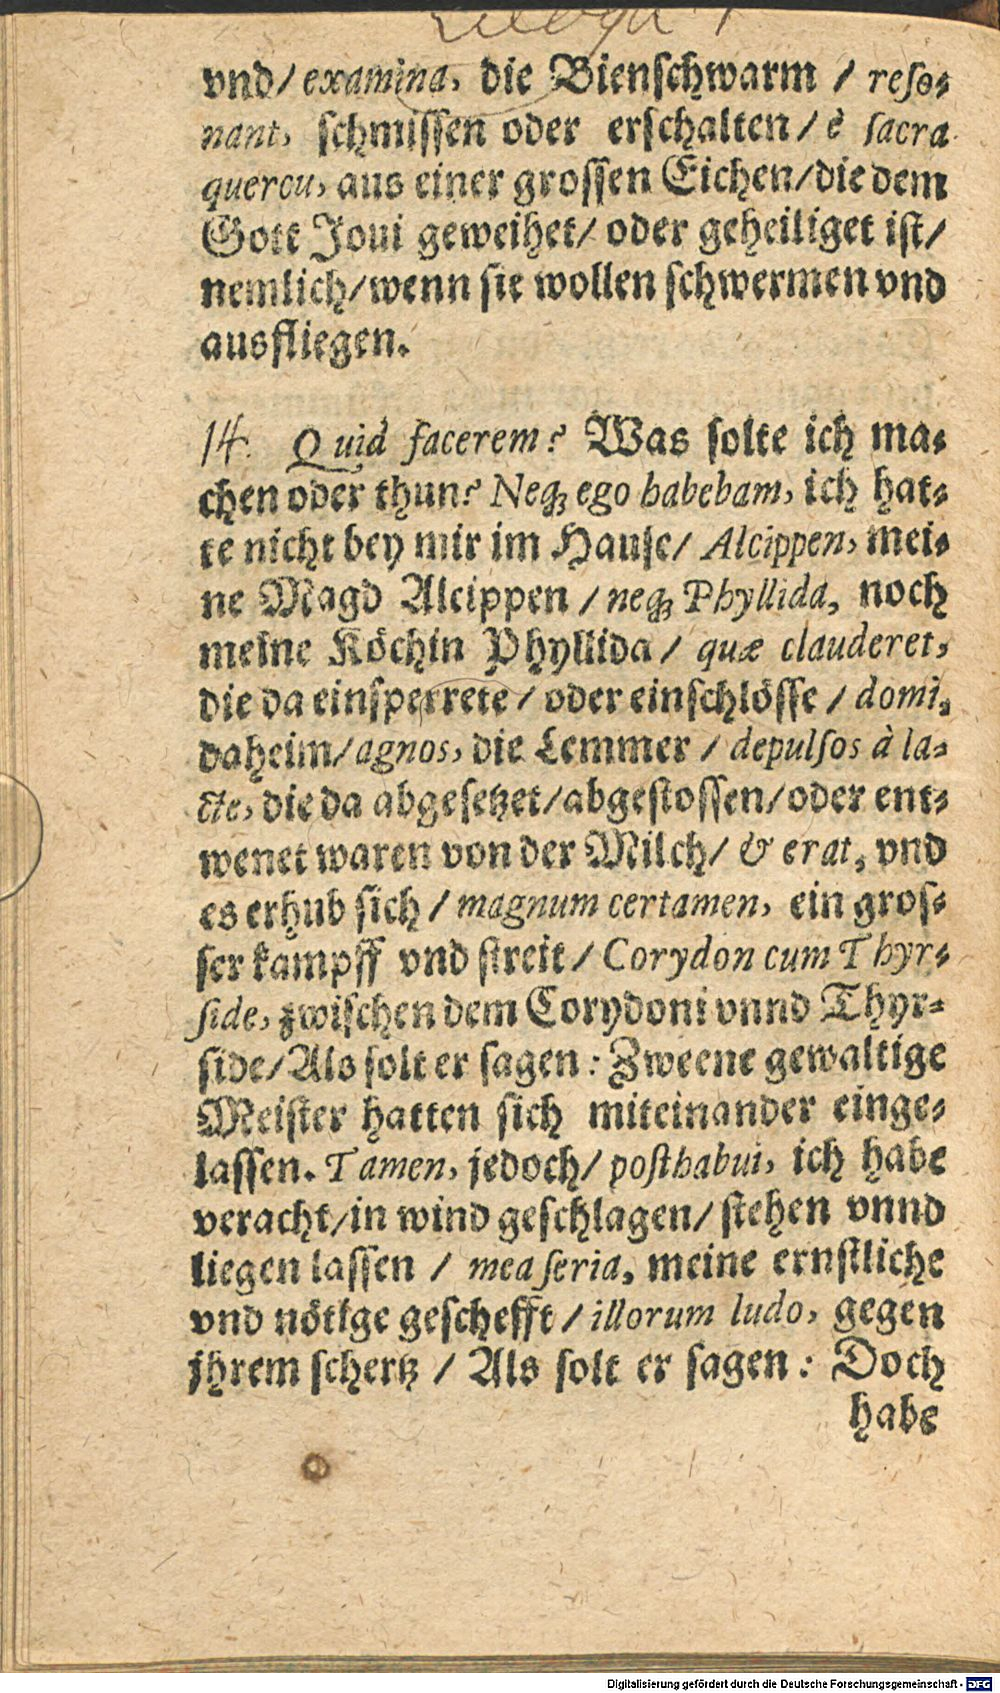 vnd/ examina, die Bienschwarm / reso-
nant, schmissen oder erschalten/ è sacra
quercu, aus einer grossen Eichen/die dem
Gott Joui geweihet/ oder geheiliget ist/
nemlich/wenn sie wollen schwermen vnd
ausfliegen.
14. Quid facerem? Was solte ich ma-
chen oder thun? Neq; ego habebam, ich hat-
te nicht bey mir im Hause/ Alcippen, mei-
ne Magd Alcippen / neq; Phyllida, noch
meine Köchin Phyllida / quæ clauderet,
die da einsperrete / oder einschlösse / domi,
daheim/ agnos, die Lemmer / depulsos à la-
cte, die da abgesetzet/abgestossen/oder ent-
wenet waren von der Milch/ & erat, vnd
es erhub sich / magnum certamen, ein gros-
ser kampff vnd streit / Corydon cum Thyr-
side, zwischen dem Corydoni vnnd Thyr-
side/Als solt er sagen : Zweene gewaltige
Meister hatten sich miteinander einge-
lassen. Tamen, jedoch/ posthabui, ich habe
veracht/in wind geschlagen/ stehen vnnd
liegen lassen / mea seria, meine ernstliche
vnd nötige geschefft / illorum ludo, gegen
jhrem schertz / Als solt er sagen : Doch
habe
Digitalisierung gefördert durch die Deutsche Forschungsgemeinschaft - DFG